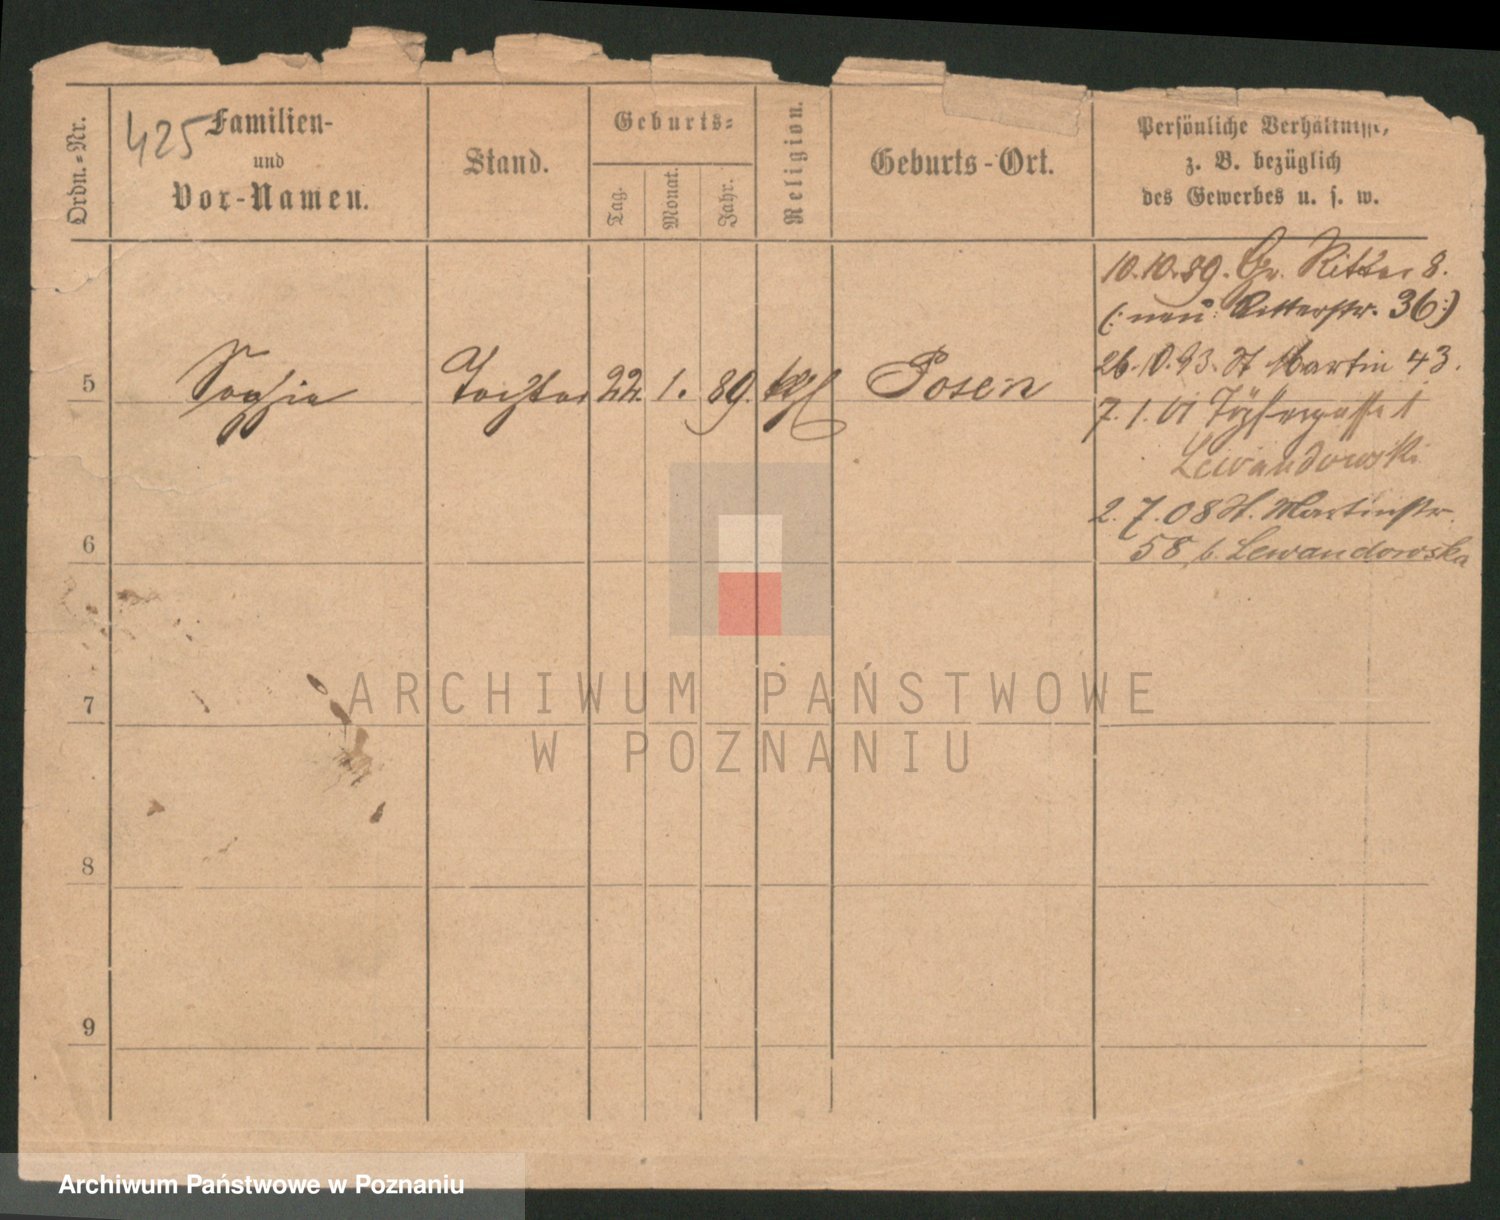 425
Ordn.-Nr.
Familien-
und
Vor-Namen.
Stand.
Geburts-
Tag.
Monat.
Jahr.
Religion.
Geburts-Ort.
Persönliche Verhältnisse,
z. B. bezüglich
des Gewerbes u. s. w.
10.10.89. Gr. Ritter 8.
(: neu: Ritterstr. 36:)
5 Sophie Tochter 22. 1. 89. kth Posen
26.10.93. St Martin 43.
7. 1. 01
Lewandowski
2. 7. 08 St. Martinstr.
58, b. Lewandowska
6
7
8
9
ARCHIWUM PAŃSTWOWE
W POZNANIU
Archiwum Państwowe w Poznaniu